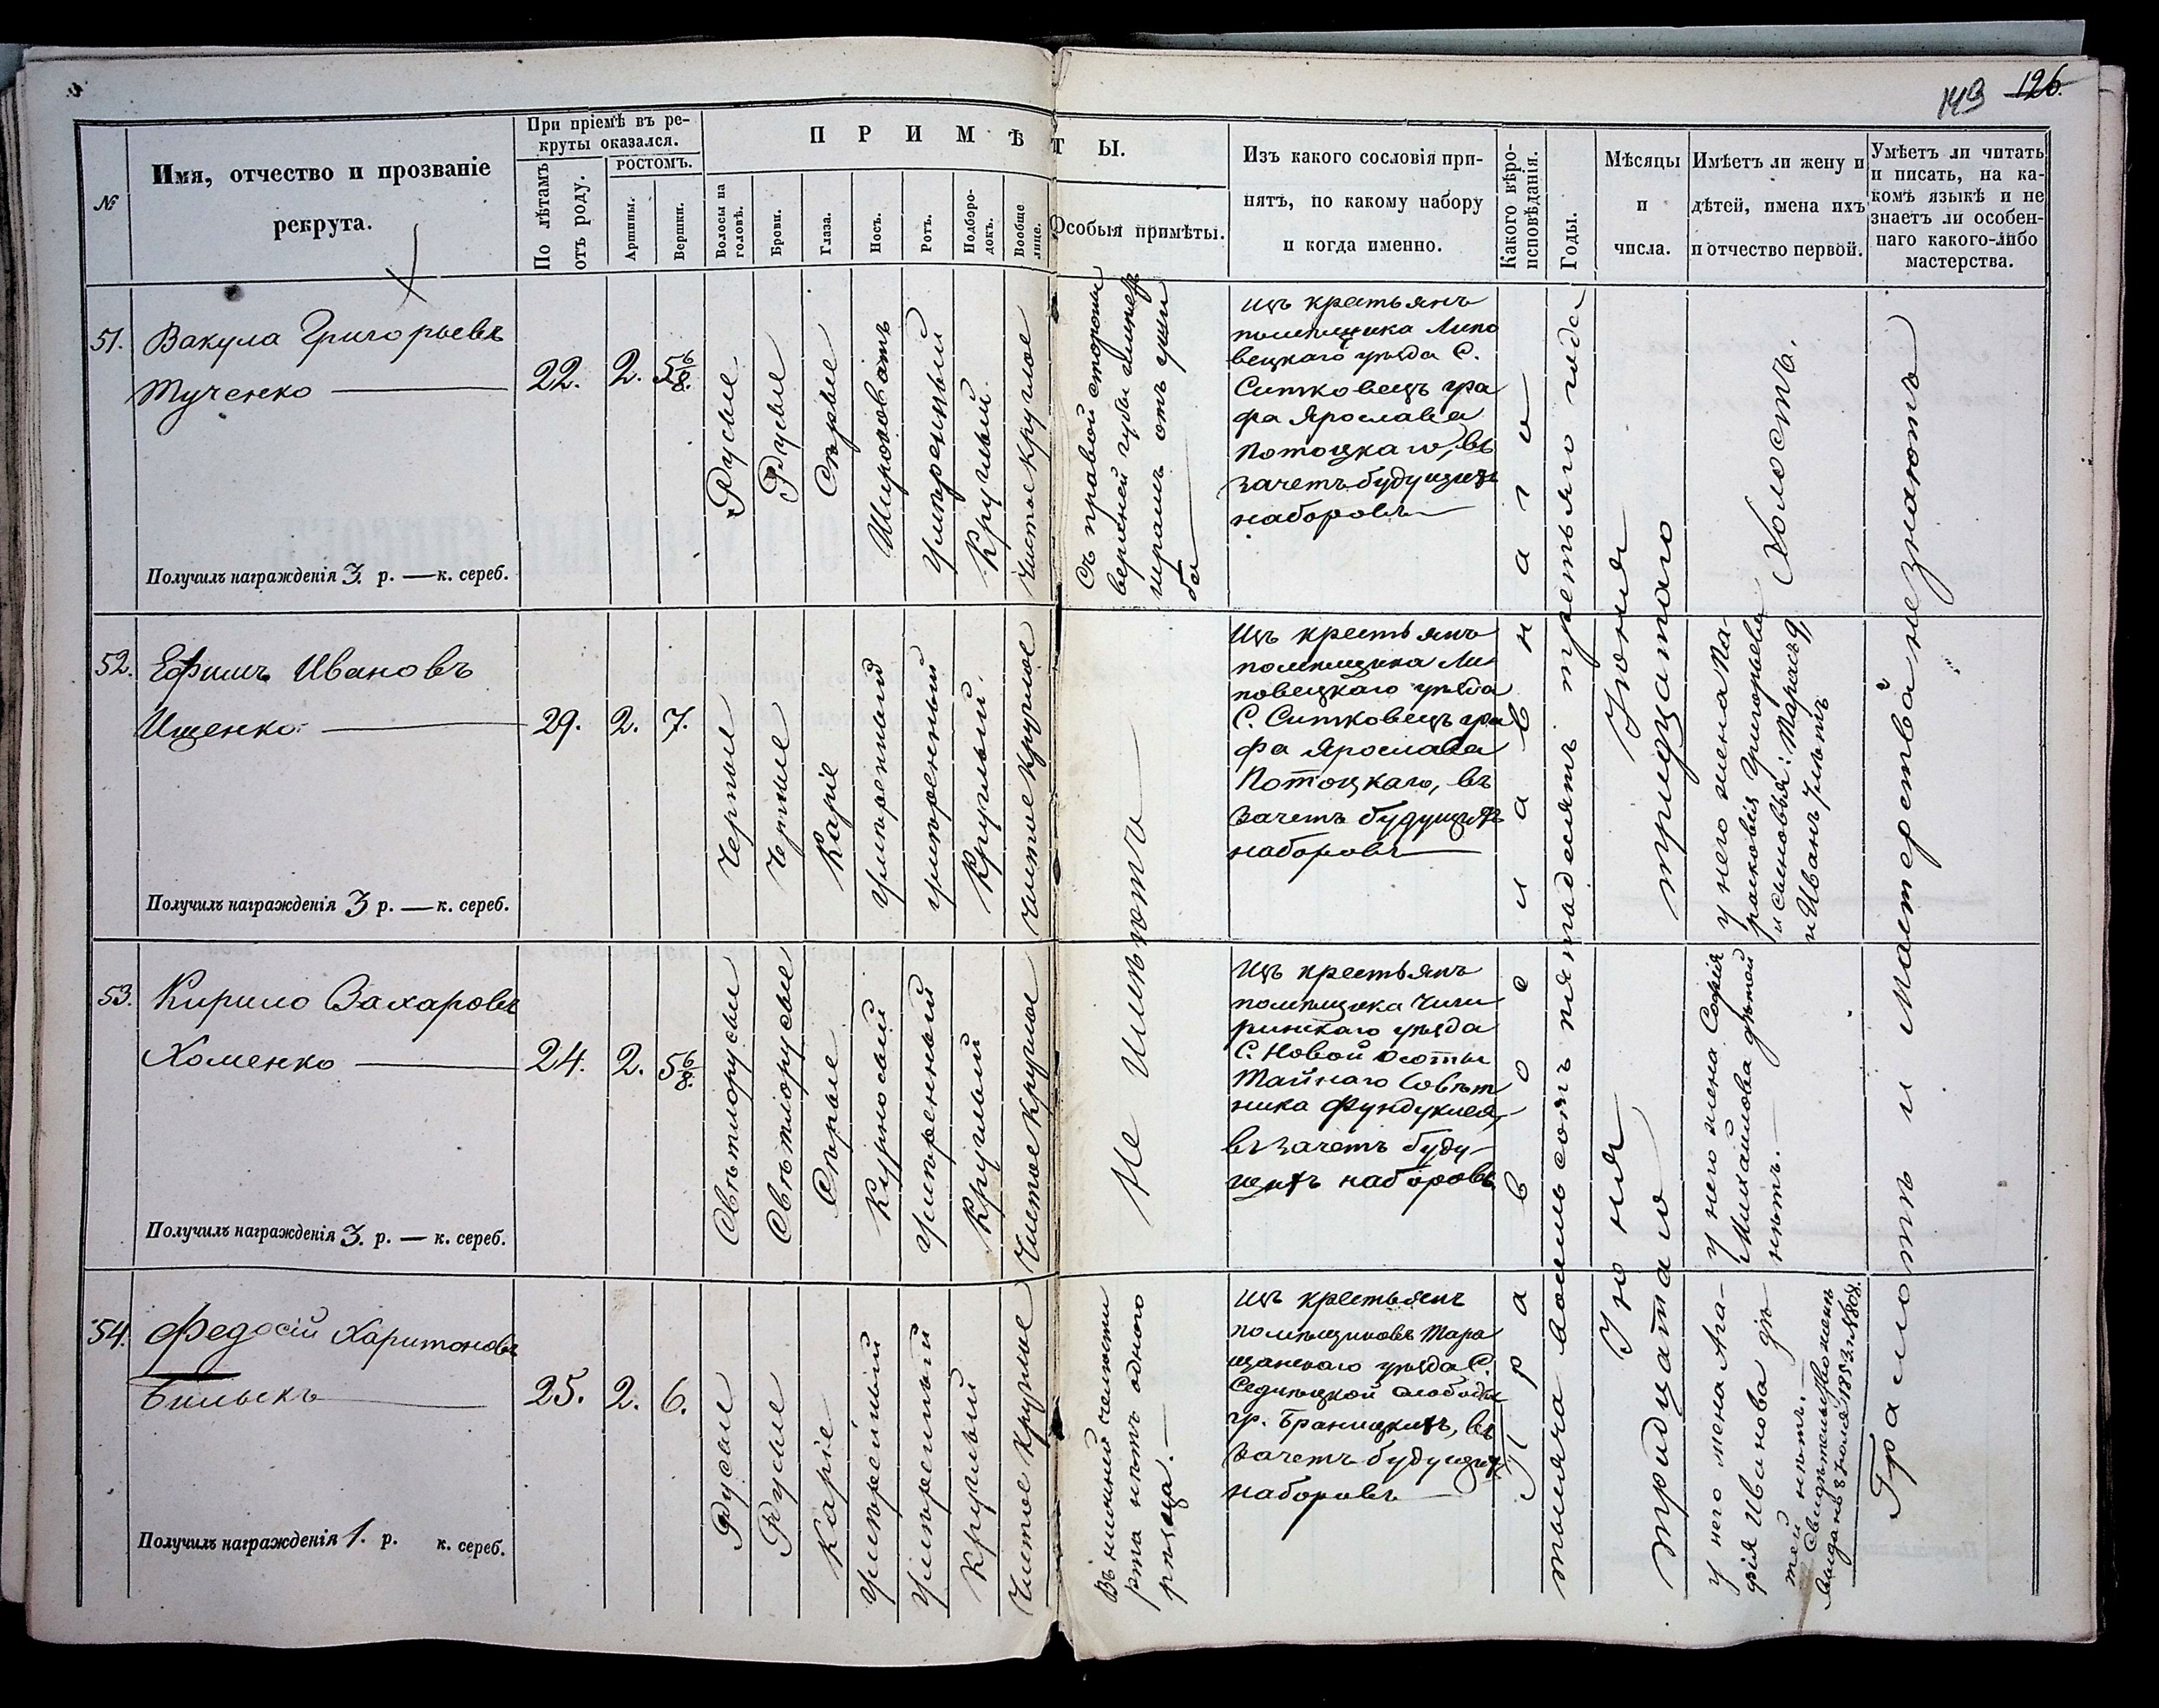 143 126.
№
Имя, отчество и прозваніе
рекрута.
При пріемѣ въ ре-
круты оказался.
По лѣтамъ
отъ роду.
ростомъ.
Аршины.
Вершки.
ПРИМѢТЫ.
Волосы на
головѣ.
Брови.
Глаза.
Носъ.
Ротъ.
Подборо-
докъ.
Вообще
лице.
Особыя примѣты.
Изъ какого сословія при-
нятъ, по какому набору
и когда именно.
Какого вѣро-
исповѣданія.
Годы.
Мѣсяцы
и
числа.
Имѣетъ ли жену и
дѣтей, имена ихъ
и отчество первой.
Умѣетъ ли читать
и писать, на ка-
комъ языкѣ и не
знаетъ ли особен-
наго какого-либо
мастерства.
51.
Вакула Григорьевъ
Тученко
Получилъ награжденія 3. р. — к. сереб.
22.
2.
5 6/8.
Русые
Русые
Сѣрые
Широковатъ
Умѣренный
Круглый.
Чистое круглое
Съ правой стороны
верхней губы
шрамъ отъ ушы
ба
изъ крестьянъ
помѣщика Липо
вецкаго уѣзда С.
Ситковецъ гра
фа Ярослава
Потоцкаго, въ
зачетъ будущихъ
наборовъ
Холостъ.
52.
Ефимъ Ивановъ
Ищенко
Получилъ награжденія 3 р. — к. сереб.
29.
2.
7.
Черные
Черные
Каріе
Умѣренный
умѣренный
Круглый.
Чистое круглое
Изъ крестьянъ
помѣщика Ли
повецкаго уѣзда
С. Ситковецъ гра
фа Ярослава
Потоцкаго, въ
зачетъ будущихъ
наборовъ
у него жена Па-
расковія Григорьева
и сыновья: Тарасъ 9,
и Иванъ лѣтъ
53.
Кирило Захаровъ
Хоменко
Получилъ награжденія 3. р. — к. сереб.
24.
2.
5 6/8.
Свѣтлорусые
Свѣтлорусые
Сѣрые
Курносый
Умѣренный
Круглый
Чистое круглое
Не имѣютъ
Изъ крестьянъ
помѣщика Чиги
ринскаго уѣзда
С. Новой Осоты
Тайнаго Совѣт
ника Фундуклея,
въ зачетъ буду-
щихъ наборовъ.
у него жена Софія
Михайлова дѣтей
нѣтъ.
54.
Федосій Харитоновъ
Бильскъ
Получилъ награжденія 1. р. к. сереб.
25.
2.
6.
Русые
Русые
Каріе
Умѣренный
Умѣренный
Круглый
Чистое круглое
Въ нижней челюсти
рта нѣтъ одного
рѣзца.
изъ крестьянъ
помѣщиковъ Тара
щанскаго уѣзда С.
слободы
гр. Браницкихъ, въ
зачетъ будущихъ
наборовъ
Православнаго
тысяча восемьсотъ пятьдесятъ третьяго года
Іюня
тридцатаго
Іюня
тридцатаго
у него жена Ага-
фія Иванова дѣ
тей нѣтъ.
Свидѣтельство
выдано 8 Іюля 1853 №808.
Грамотѣ и мастерства не знаютъ